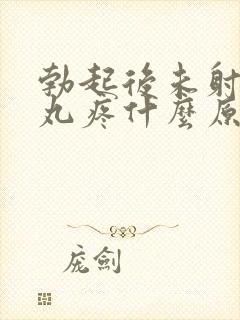 勃起後未射
丸疼什麼原
庞劍